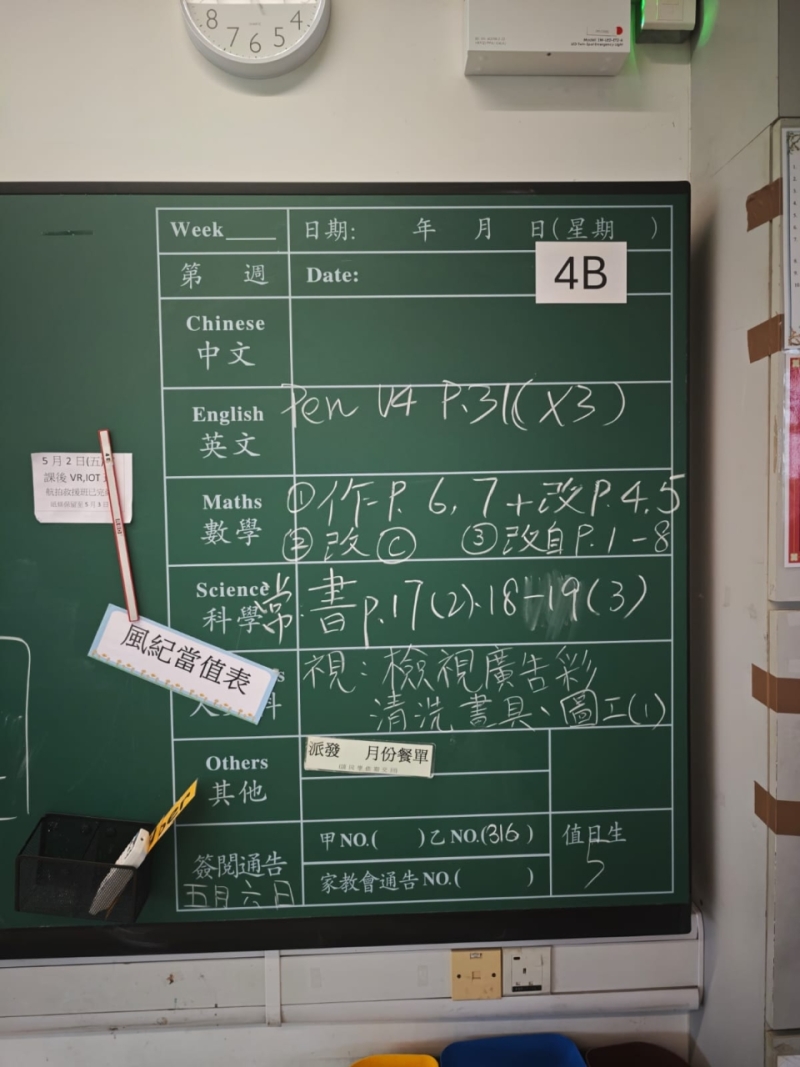 8 7 6 5 4
Week____ 日期: 年 月 日(星期 )
第 週 Date:
4B
Chinese
中文
English
英文
Pen U4 P.31(X3)
5月2日(五)
課後 VR,IOT
Maths
數學
①作P. 6, 7 + 改P. 4, 5
②改Ⓒ ③改自P. 1-8
Science
科學
常. 書 p.17(2).18-19(3)
風紀當值表
視：檢視廣告彩
清洗畫具、圖工(1)
Others
其他
派發 月份餐單
簽閱通告
五月六日
甲NO.( )乙NO.(316)
家教會通告NO.( )
值日生
5